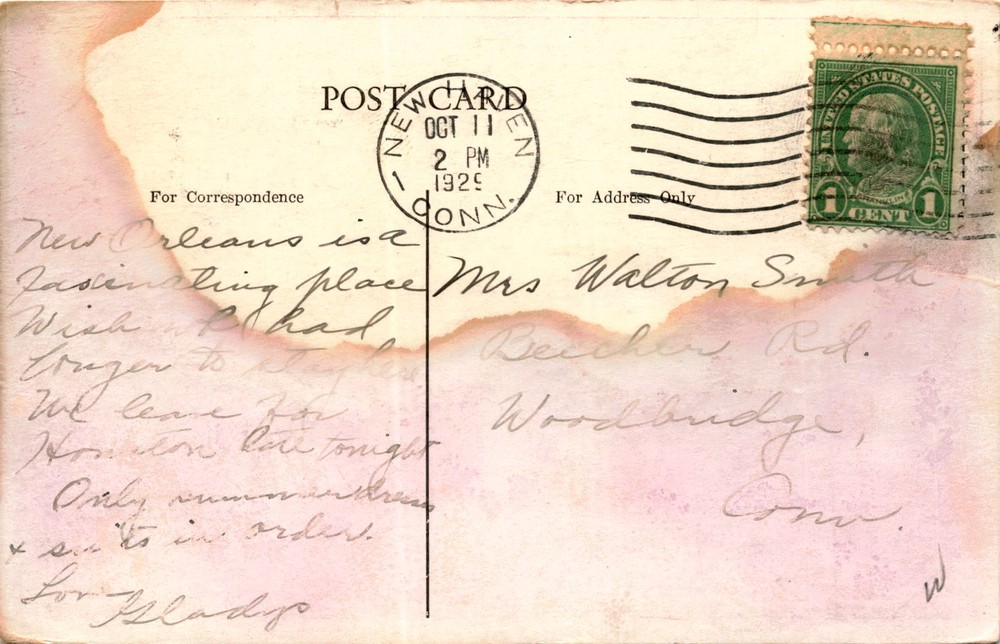 POST CARD
NEW HAVEN
OCT 11
2 PM
1929
CONN.
UNITED STATES POSTAGE
FRANKLIN
1 CENT 1
For Correspondence
For Address Only
New Orleans is a
fascinating place
Wish we had
longer to stay here
We leave for
Houston late tonight
Only summer dress
+ suits in order.
Love
Gladys
Mrs Walton Smith
Beecher Rd.
Woodbridge,
Conn.
W